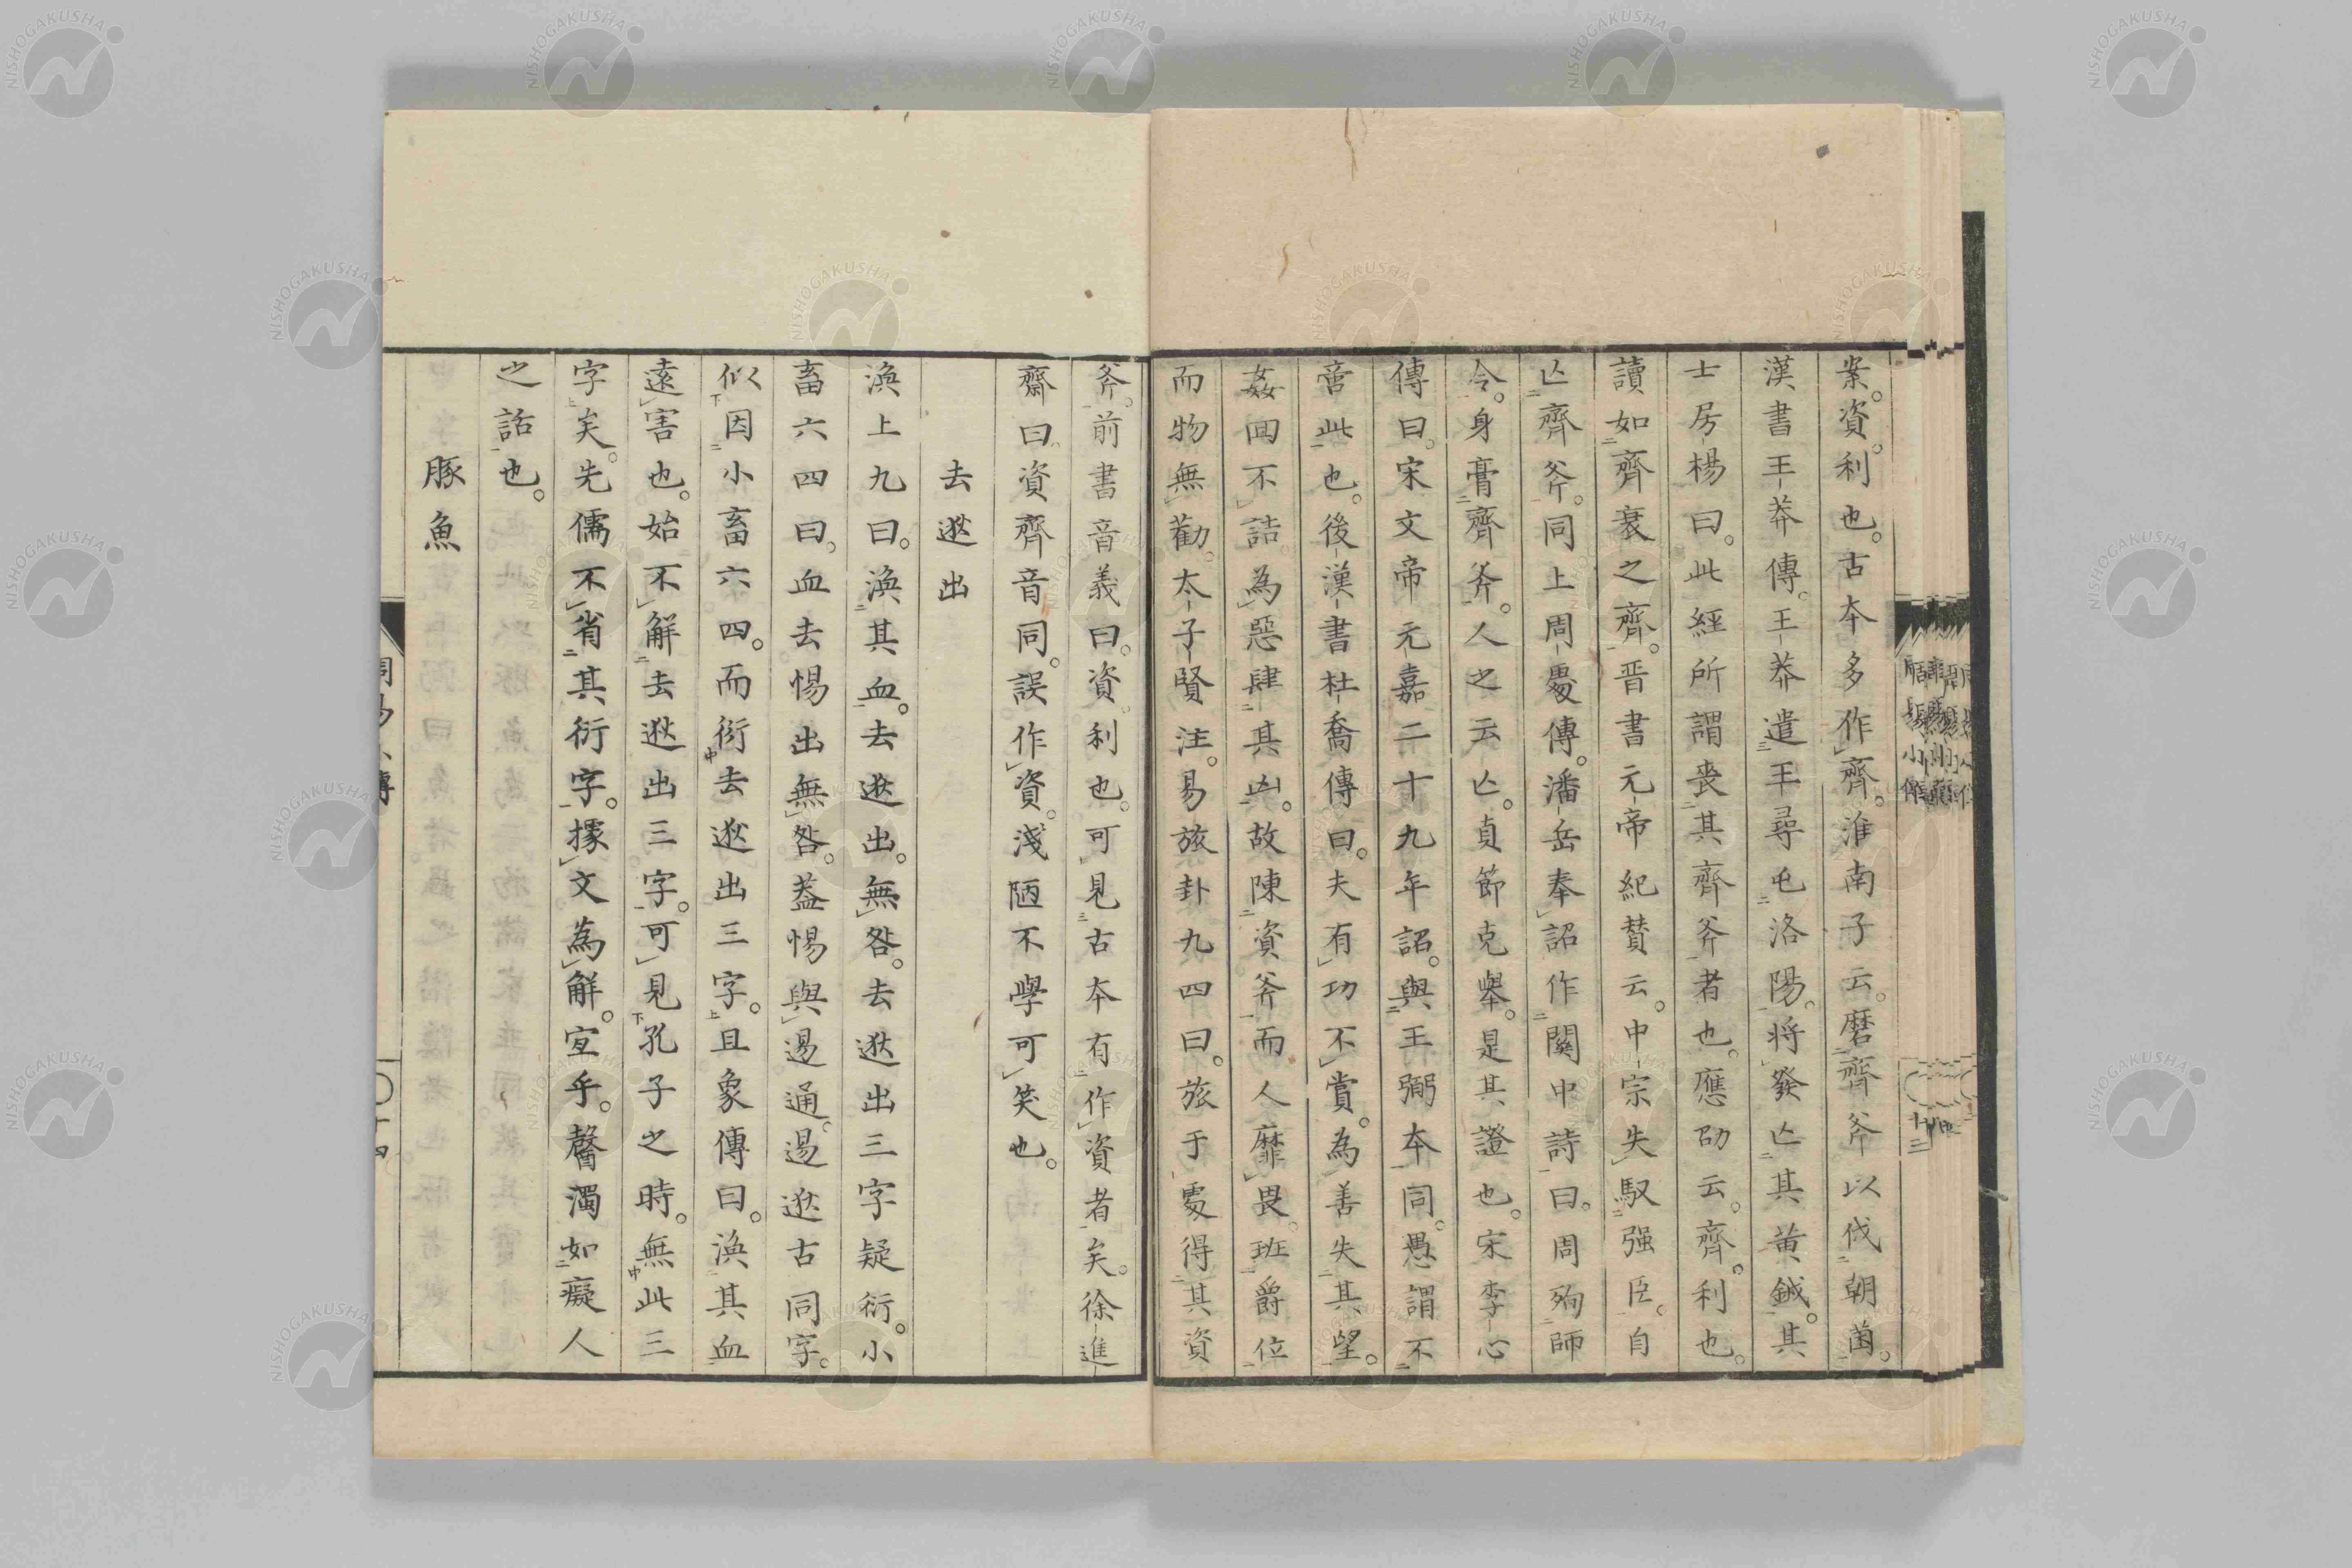 案。資。利也。古本多作齊。淮南子云。磨齊斧以伐朝菌。
漢書王莽傳。王莽遣王尋屯洛陽。將發亡其黃鉞。其
士房楊曰。此經所謂喪其齊斧者也。應劭云。齊。利也。
讀如齊衰之齊。晋書元帝紀賛云。中宗失馭强臣。自
亡齊斧。同上周處傳。潘岳奉詔作關中詩曰。周殉師
令。身膏齊斧。人之云亡。貞節克舉。是其證也。宋李心
傳曰。宋文帝元嘉二十九年詔。與王弼本同。愚謂不
啻此也。後漢書杜喬傳曰。夫有功不賞。為善失其望。
姦回不詰。為惡肆其凶。故陳資斧而人靡畏。班爵位
而物無勸。太子賢注。易旅卦九四曰。旅于處得其資
斧。前書音義曰。資。利也。可見古本有作資者矣。徐進
齋曰。資齊音同。誤作資。淺陋不學可笑也。
去逖出
渙上九曰。渙其血。去逖出。無咎。去逖出三字疑衍。小
畜六四曰。血去惕出無咎。蓋惕與逷通。逷逖古同字。
似因小畜六四。而衍去逖出三字。且象傳曰。渙其血
遠害也。始不解去逖出三字。可見孔子之時。無此三
字矣。先儒不省其衍字。據文為解。宜乎。醫濁如癡人
之話也。
豚魚
NISHOGAKUSHA